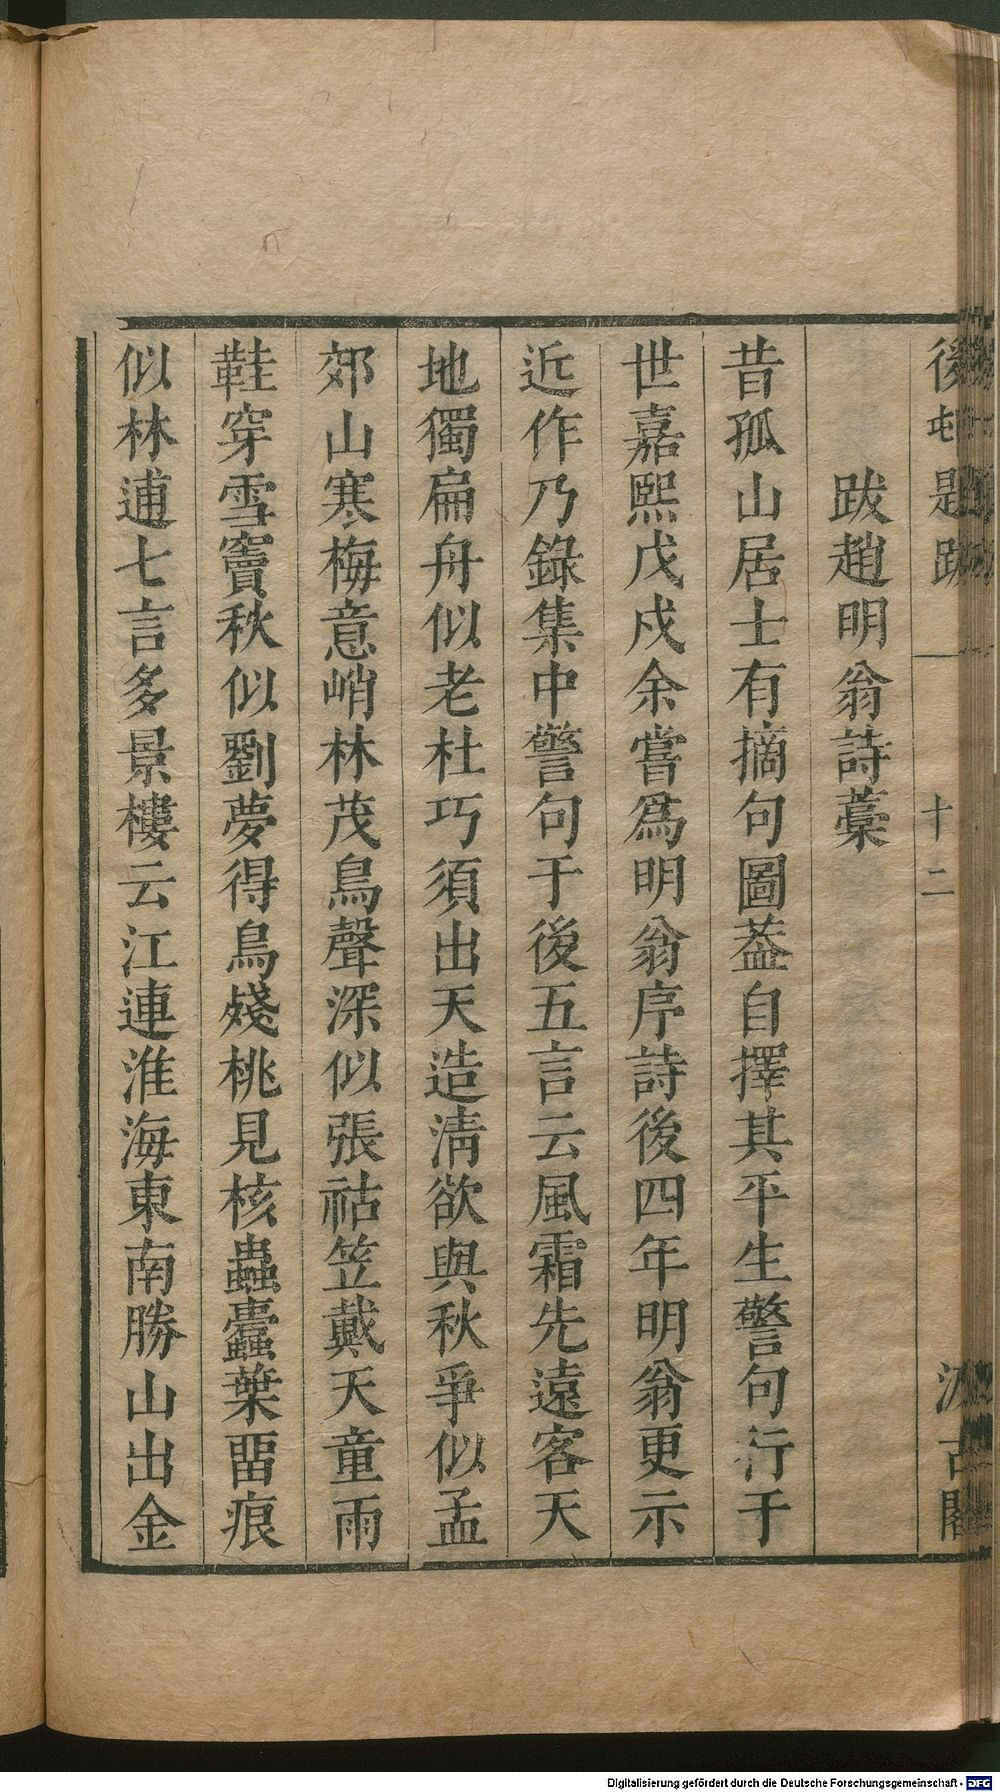 後村題跋 一 十二 汲古閣
跋趙明翁詩藁
昔孤山居士有摘句圖葢自擇其平生警句行于
世嘉熙戊戌余嘗爲明翁序詩後四年明翁更示
近作乃錄集中警句于後五言云風霜先遠客天
地獨扁舟似老杜巧須出天造淸欲與秋爭似孟
郊山寒梅意峭林茂鳥聲深似張祜笠戴天童雨
鞋穿雪竇秋似劉夢得鳥殘桃見核蟲蠹葉畱痕
似林逋七言多景樓云江連淮海東南勝山出金
Digitalisierung gefördert durch die Deutsche Forschungsgemeinschaft - DFG